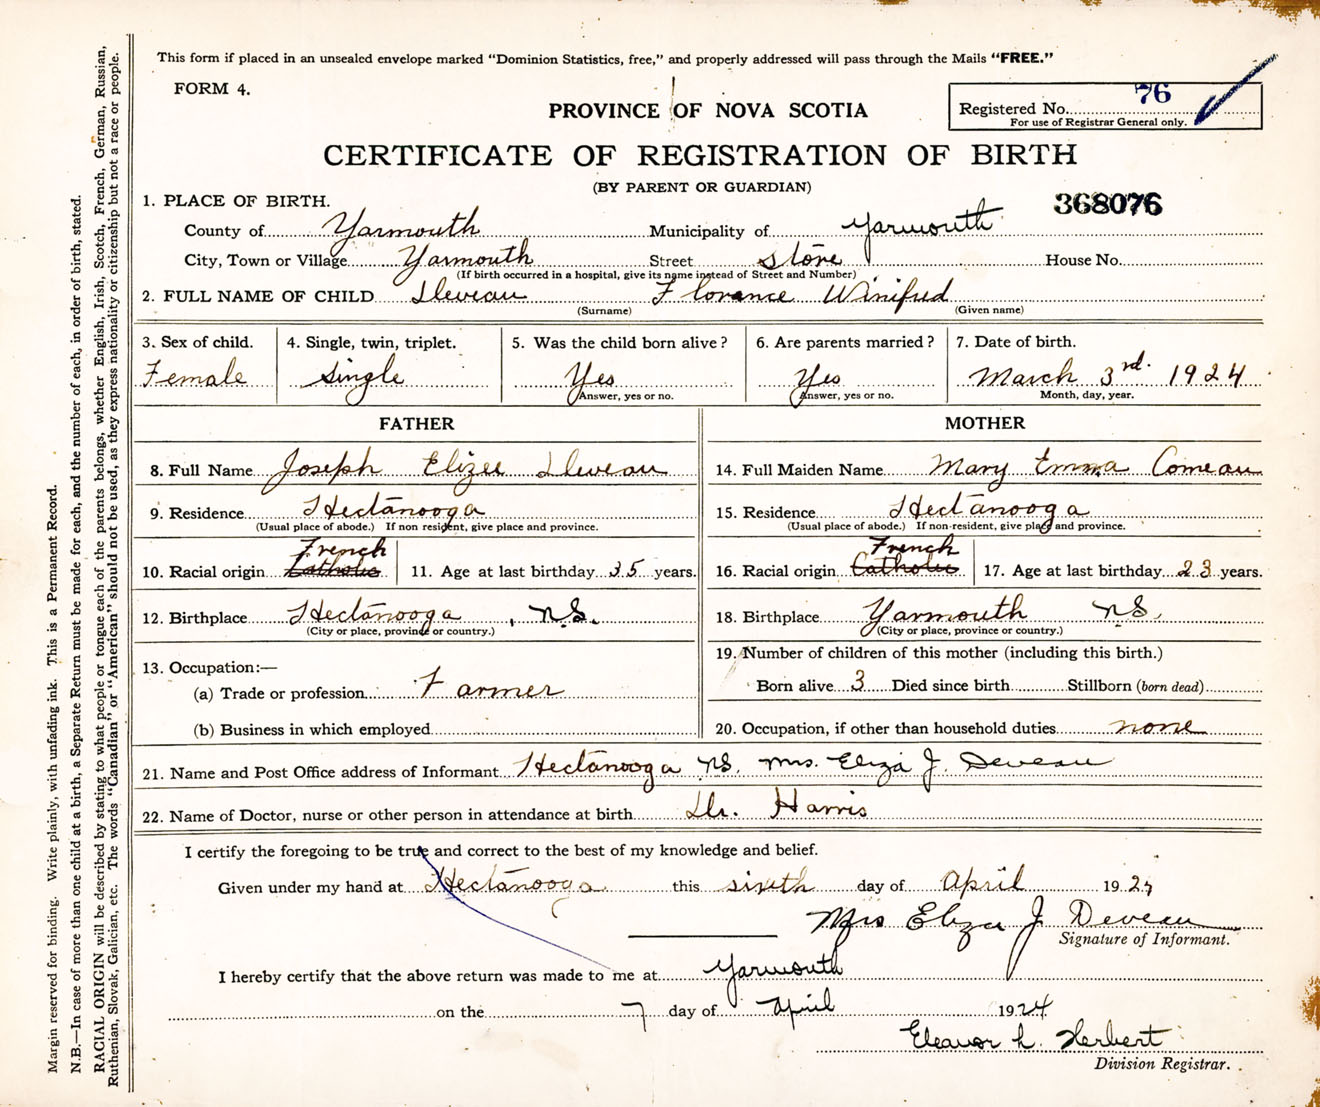 This form if placed in an unsealed envelope marked “Dominion Statistics, free,” and properly addressed will pass through the Mails “FREE.”
FORM 4.
PROVINCE OF NOVA SCOTIA
Registered No. 76
For use of Registrar General only.
CERTIFICATE OF REGISTRATION OF BIRTH
(BY PARENT OR GUARDIAN)
368076
1. PLACE OF BIRTH.
County of Yarmouth Municipality of Yarmouth
City, Town or Village Yarmouth Street store House No.
(If birth occurred in a hospital, give its name instead of Street and Number)
2. FULL NAME OF CHILD Deveau Florance Winifred
(Surname) (Given name)
3. Sex of child. 4. Single, twin, triplet. 5. Was the child born alive? 6. Are parents married? 7. Date of birth.
Female single Yes Yes March 3rd. 1924
Answer, yes or no. Answer, yes or no. Month, day, year.
FATHER MOTHER
8. Full Name Joseph Elizee Deveau 14. Full Maiden Name Mary Emma Comeau
9. Residence Hectanooga 15. Residence Hectanooga
(Usual place of abode.) If non resident, give place and province. (Usual place of abode.) If non-resident, give place and province.
French French
10. Racial origin Catholic 11. Age at last birthday 35 years. 16. Racial origin Catholic 17. Age at last birthday 23 years.
12. Birthplace Hectanooga, N.S. 18. Birthplace Yarmouth N.S.
(City or place, province or country.) (City or place, province or country.)
13. Occupation:— 19. Number of children of this mother (including this birth.)
(a) Trade or profession Farmer Born alive 3 Died since birth Stillborn (born dead)
(b) Business in which employed 20. Occupation, if other than household duties none
21. Name and Post Office address of Informant Hectanooga N.S. Mrs. Eliza J. Deveau
22. Name of Doctor, nurse or other person in attendance at birth Dr. Harris
I certify the foregoing to be true and correct to the best of my knowledge and belief.
Given under my hand at Hectanooga this sixth day of April 1924
Mrs Eliza J Deveau
Signature of Informant.
I hereby certify that the above return was made to me at Yarmouth
on the 7 day of April 1924
Eleanor L. Herbert
Division Registrar.
Margin reserved for binding. Write plainly, with unfading ink. This is a Permanent Record.
N.B.—In case of more than one child at a birth, a Separate Return must be made for each, and the number of each, in order of birth, stated.
RACIAL ORIGIN will be described by stating to what people or tongue each of the parents belongs, whether English, Irish, Scotch, French, German, Russian,
Ruthenian, Slovak, Galician, etc. The words “Canadian” or “American” should not be used, as they express nationality or citizenship but not a race or people.